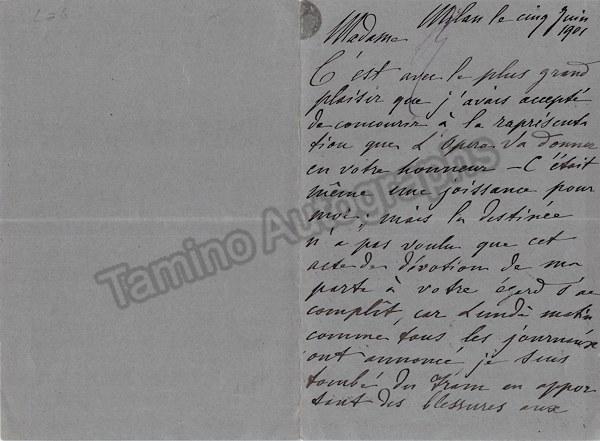 Milan le cinq Juin
1901
Madame
C'est avec le plus grand
plaisir que j'avais accepté
de concourir à la représenta
tion que L'Opera va donner
en votre honneur – C'était
même une joissance pour
moi; mais la destinée
n'a pas voulu que cet
acte de dévotion de ma
parte à votre égard s'ac
complît, car Lundì matin
comme tous les journaux
ont annoncé je suis
tombé du Tram en appor
tant des blessures aux
Tamino Autographs